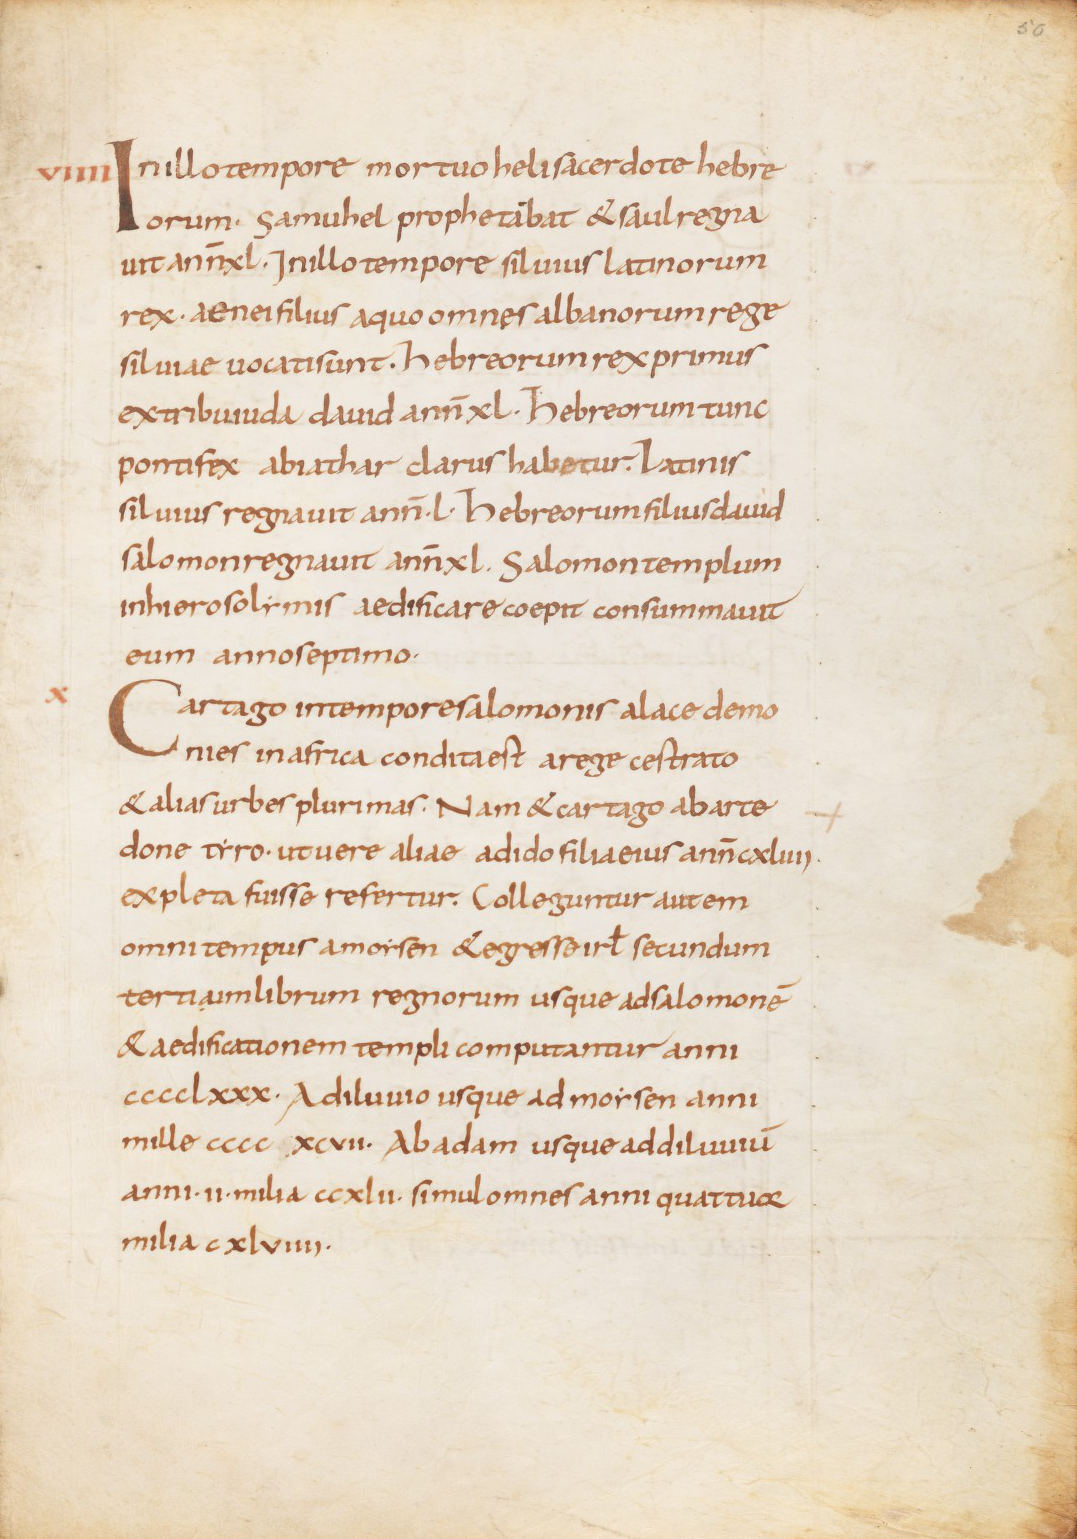 50
viiii In illo tempore mortuo heli sacerdote hebre
orum· Samuhel prophetabat & saul regna
uit ann̄ xl· In illo tempore siluius latinorum
rex· aenei filius a quo omnes albanorum rege
siluiae uocati sunt· hebreorum rex primus
ex tribu iuda dauid ann̄ xl· hebreorum tunc
pontifex abiathar clarus habetur· Latinis
siluius regnauit ann̄· l· hebreorum filius dauid
salomon regnauit ann̄ xl· Salomon templum
in hierosolẏmis aedificare coepit consummauit
eum anno septimo·
x Cartago in tempore salomonis alacedemo
nies in africa condita est a rege cestrato
& alias urbes plurimas· Nam & cartago ab arte
done tẏro· ut uere aliae a dido filia eius ann̄ cxliiii·
expleta fuisse refertur· Colleguntur autem
omni tempus a moẏsen & egresse irƚ secundum
tertiaum librum regnorum usque ad salomonē
& aedificationem templi computantur anni
cccclxxx· A diluuio usque ad moẏsen anni
mille cccc xcvii· Ab adam usque ad diluuiuū
anni· ii· milia ccxlii· simul omnes anni quattuor
milia cxlviiii·